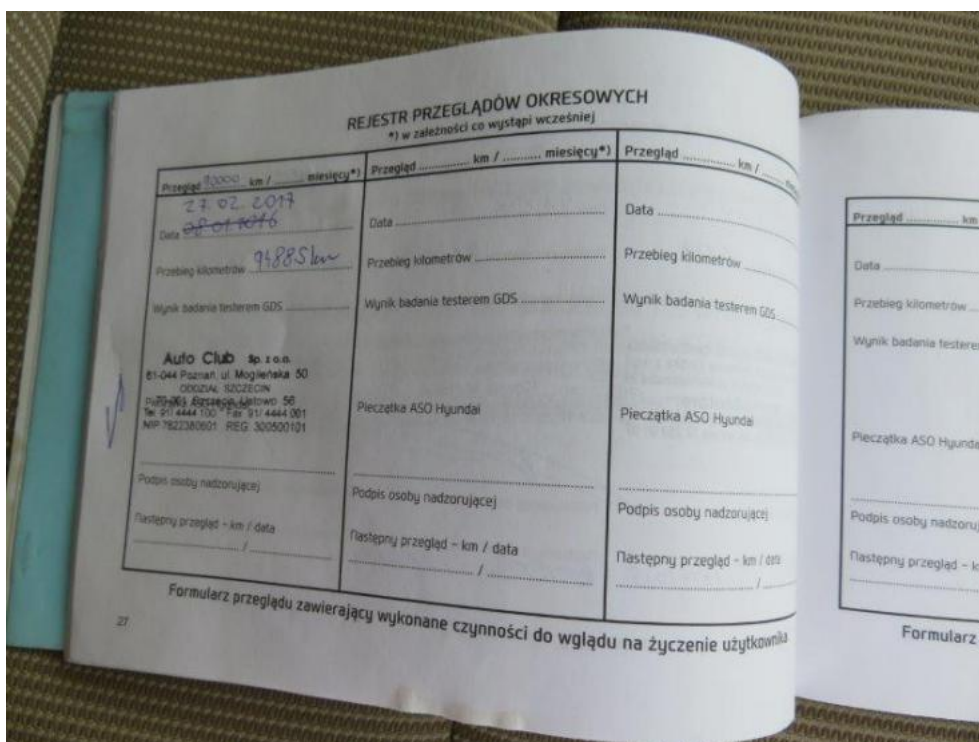 REJESTR PRZEGLĄDÓW OKRESOWYCH
*) w zależności co wystąpi wcześniej
Przegląd 90000 km / ........ miesięcy*)
27 02 2017
Data 08 01 2016
Przebieg kilometrów 94885 km
Wynik badania testerem GDS ....................
Auto Club Sp. z o.o.
61-044 Poznań, ul. Mogileńska 50
ODDZIAŁ SZCZECIN
Szczecin, Ustowo 56
Tel. 91/ 4444 100 Fax 91/ 4444 001
NIP 7822380601 REG. 300500101
Podpis osoby nadzorującej
Następny przegląd – km / data
..................../....................
Przegląd .............. km / .......... miesięcy*)
Data ....................
Przebieg kilometrów ....................
Wynik badania testerem GDS ....................
Pieczątka ASO Hyundai
Podpis osoby nadzorującej
Następny przegląd – km / data
..................../....................
Przegląd .............. km /
Data ....................
Przebieg kilometrów ....................
Wynik badania testerem GDS
Pieczątka ASO Hyundai
Podpis osoby nadzorującej
Następny przegląd – km / data
..................../..........
Formularz przeglądu zawierający wykonane czynności do wglądu na życzenie użytkownika
27
Przegląd .............. km
Data ....................
Przebieg kilometrów
Wynik badania
Pieczątka ASO
Podpis osoby
Następny przegląd –
Formularz